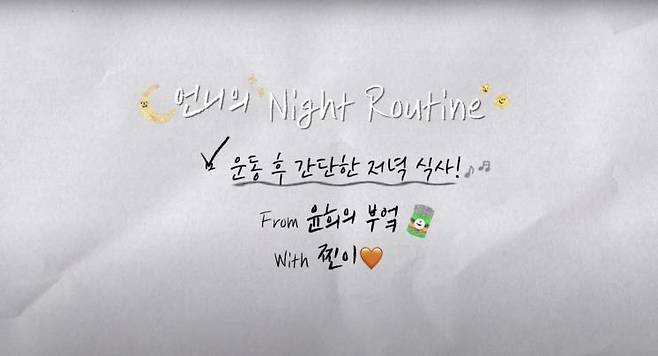 언니의 Night Routine
운동 후 간단한 저녁 식사!
From 윤희의 부엌
With 찐이